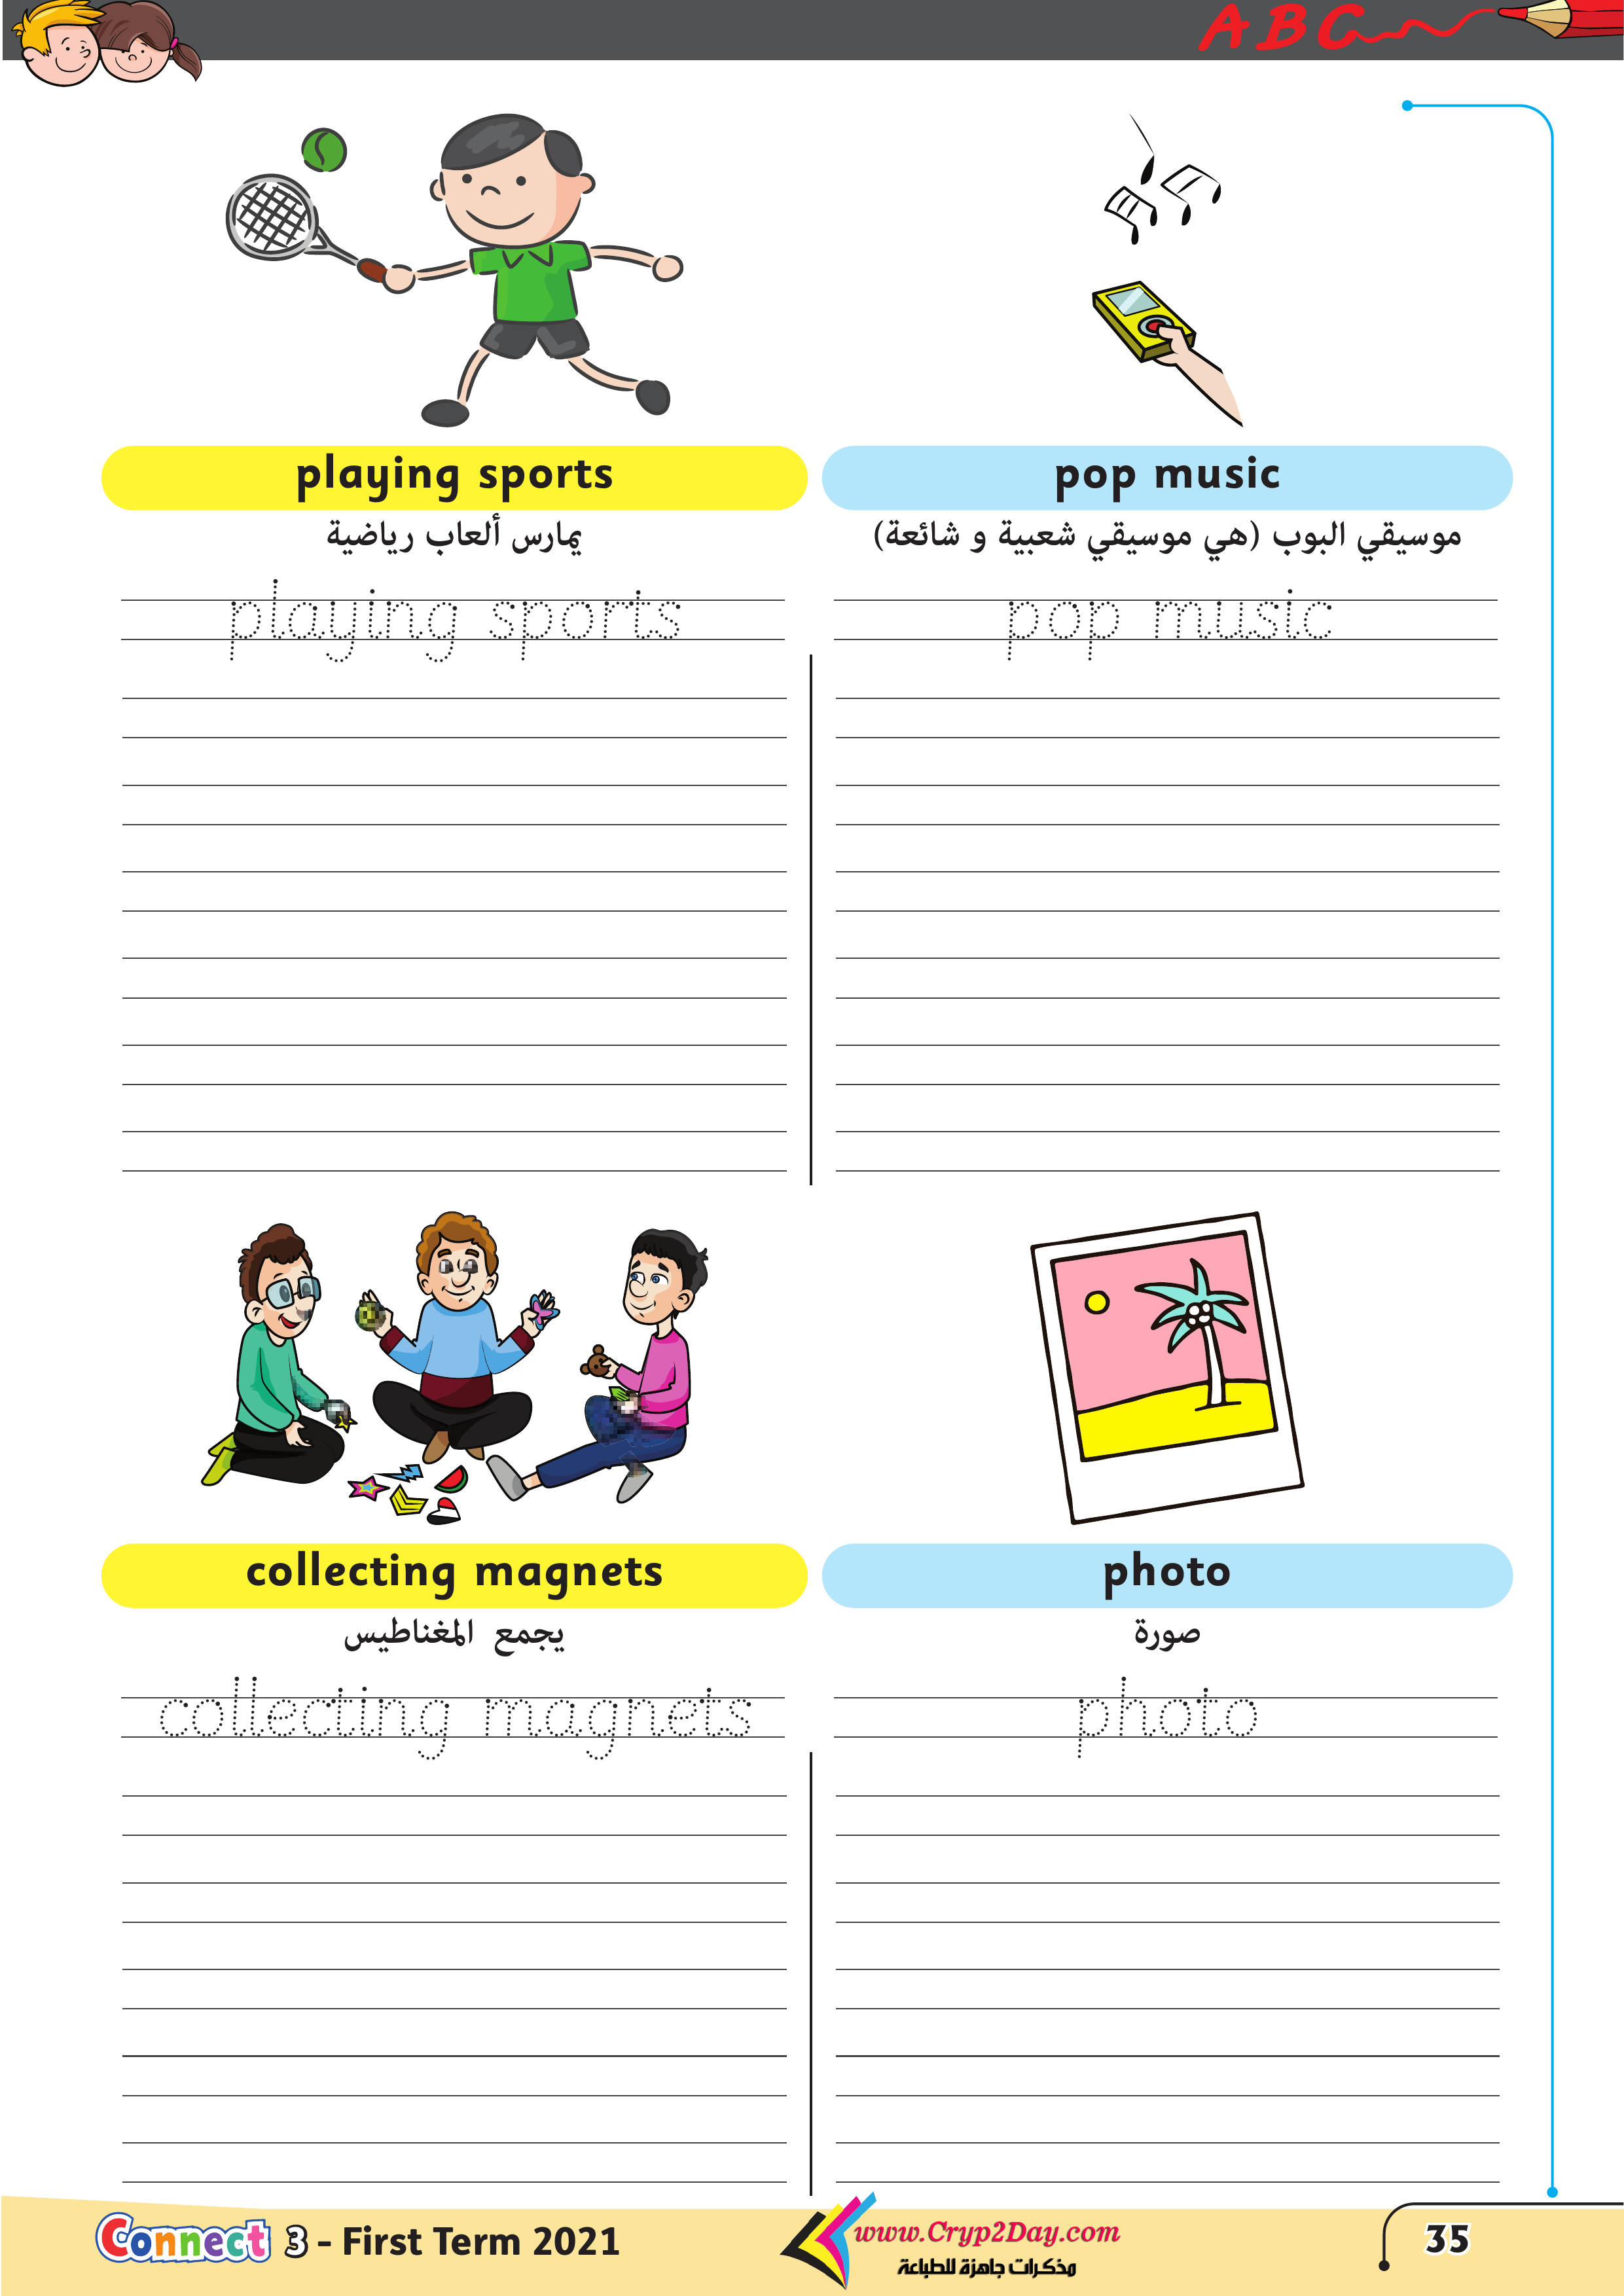 ABC
playing sports
يمارس ألعاب رياضية
playing sports
pop music
موسيقي البوب (هي موسيقي شعبية و شائعة)
pop music
collecting magnets
يجمع المغناطيس
collecting magnets
photo
صورة
photo
Connect 3 - First Term 2021
www.Cryp2Day.com
مذكرات جاهزة للطباعة
35